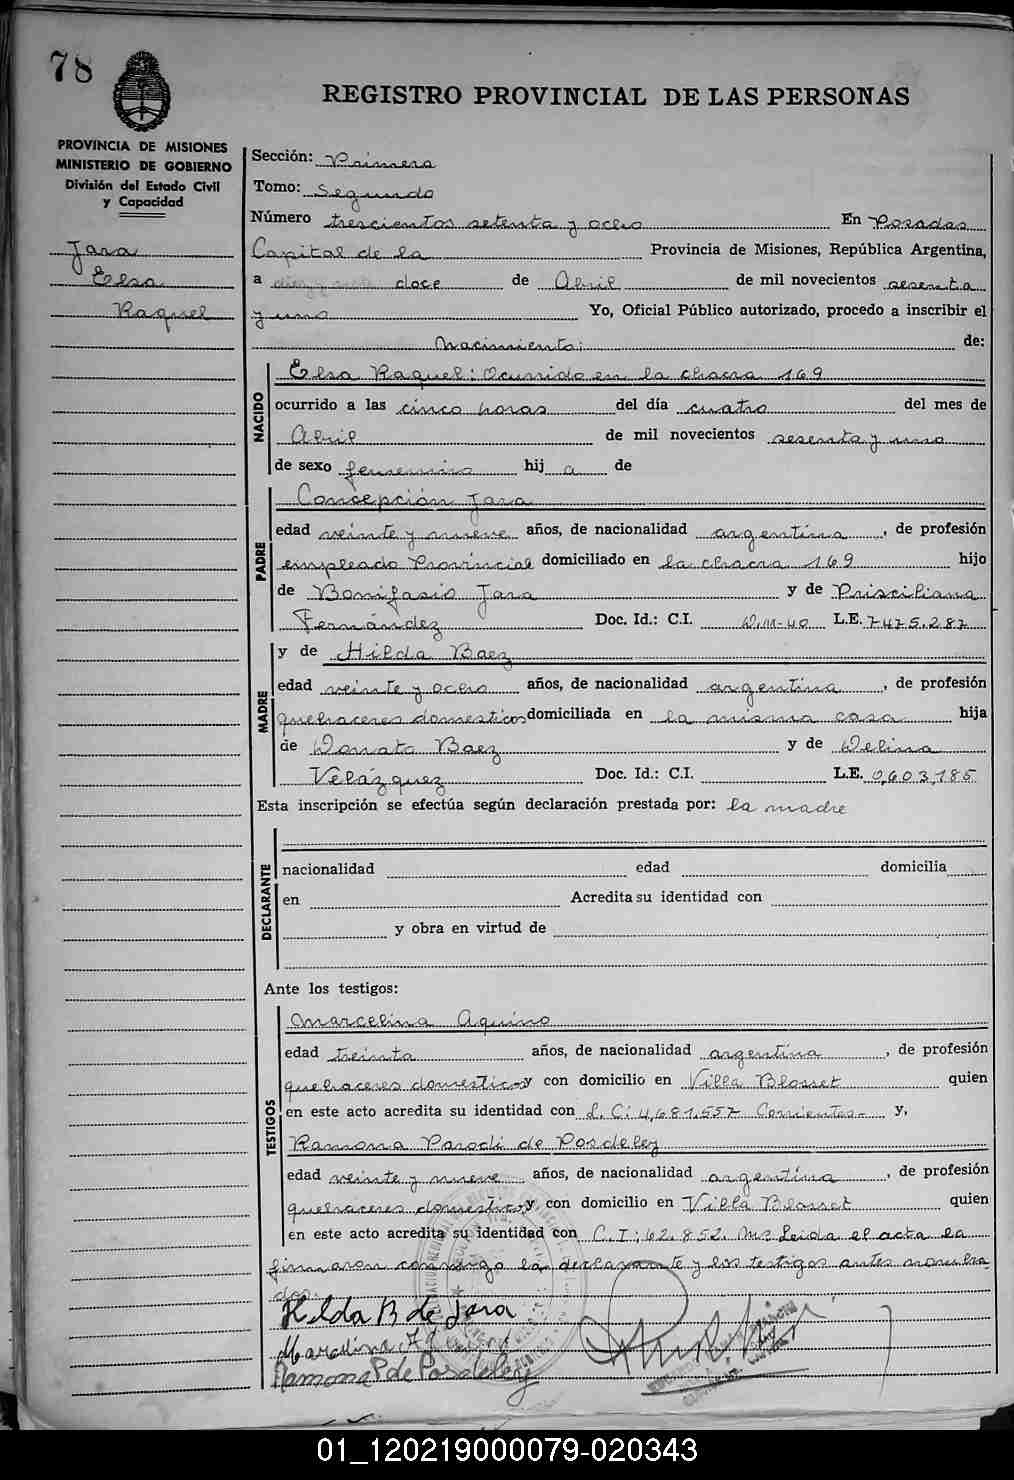 78
REGISTRO PROVINCIAL DE LAS PERSONAS
PROVINCIA DE MISIONES
MINISTERIO DE GOBIERNO
División del Estado Civil
y Capacidad
Jara
Elsa
Raquel
Sección: Primera
Tomo: Segundo
Número trescientos setenta y ocho En Posadas
Capital de la Provincia de Misiones, República Argentina,
a doce de Abril de mil novecientos sesenta
y uno Yo, Oficial Público autorizado, procedo a inscribir el
Nacimiento: de:
NACIDO
Elsa Raquel: Ocurrido en la chacra 169
ocurrido a las cinco horas del día cuatro del mes de
Abril de mil novecientos sesenta y uno
de sexo femenino hij a de
PADRE
Concepción Jara
edad veinte y nueve años, de nacionalidad argentina, de profesión
empleado Provincial domiciliado en la chacra 169 hijo
de Bonifasio Jara y de Prisciliana
Fernández Doc. Id.: C.I. D.M-40 L.E. 7475.287
MADRE
y de Hilda Baez
edad veinte y ocho años, de nacionalidad argentina, de profesión
quehaceres domesticos domiciliada en la misma casa hija
de Donato Baez y de Delina
Velázquez Doc. Id.: C.I. L.E. 0,603,185
Esta inscripción se efectúa según declaración prestada por: la madre
DECLARANTE
nacionalidad edad domicilia
en Acredita su identidad con
y obra en virtud de
Ante los testigos:
TESTIGOS
Marcelina Aquino
edad treinta años, de nacionalidad argentina, de profesión
quehaceres domesticos y con domicilio en Villa Blosset quien
en este acto acredita su identidad con L.C: 4,681.557 Corrientes- y,
Ramona Parodi de Posdeley
edad veinte y nueve años, de nacionalidad argentina, de profesión
quehaceres domesticos y con domicilio en Villa Blosset quien
en este acto acredita su identidad con C.I: 62.852. Ms Leida el acta la
firmaron conmigo la declarante y los testigos antes nombra
dos.
Hilda B de Jara
Marcelina
Ramona P de Posdeley
01_120219000079-020343